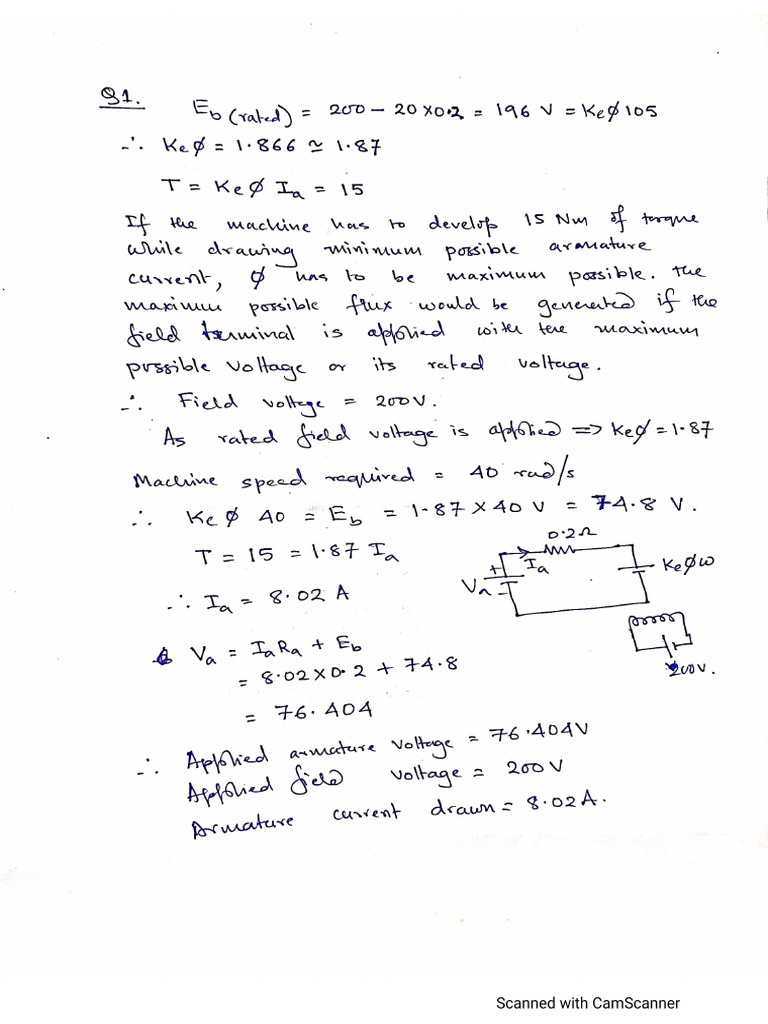 Q1.
Eb(rated) = 200 - 20×0.2 = 196 V = Keφ105
∴ Keφ = 1.866 ≃ 1.87
T = Keφ Ia = 15
If the machine has to develop 15 Nm of torque
while drawing minimum possible armature
current, φ has to be maximum possible. The
maximum possible flux would be generated if the
field terminal is applied with the maximum
possible voltage or its rated voltage.
∴ Field voltage = 200V.
As rated field voltage is applied => Keφ = 1.87
Machine speed required = 40 rad/s
∴ Keφ 40 = Eb = 1.87×40 V = 74.8 V.
T = 15 = 1.87 Ia
∴ Ia = 8.02 A
0.2Ω
+ Ia
Va
-
Keφω
200V.
Va = IaRa + Eb
= 8.02×0.2 + 74.8
= 76.404
∴ Applied armature voltage = 76.404V
Applied field voltage = 200V
Armature current drawn = 8.02A.
Scanned with CamScanner